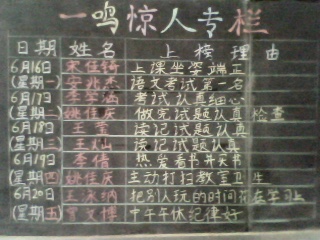 一鸣惊人专栏
日期 姓名 上榜理由
6月16日 宋佳锜 上课坐姿端正
(星期一) 安兆杰 语文考试第一名
6月17日 李学涵 考试认真细心
(星期二) 姚佳庆 做完试题认真检查
6月18日 王莹 读记试题认真
(星期三) 王灿 读记试题认真
6月19日 李倩 热爱看书开买书
(星期四) 姚佳庆 主动打扫教室卫生
6月20日 王泳纳 把别人玩的时间花在学习上
(星期五) 贾文博 中午午休纪律好